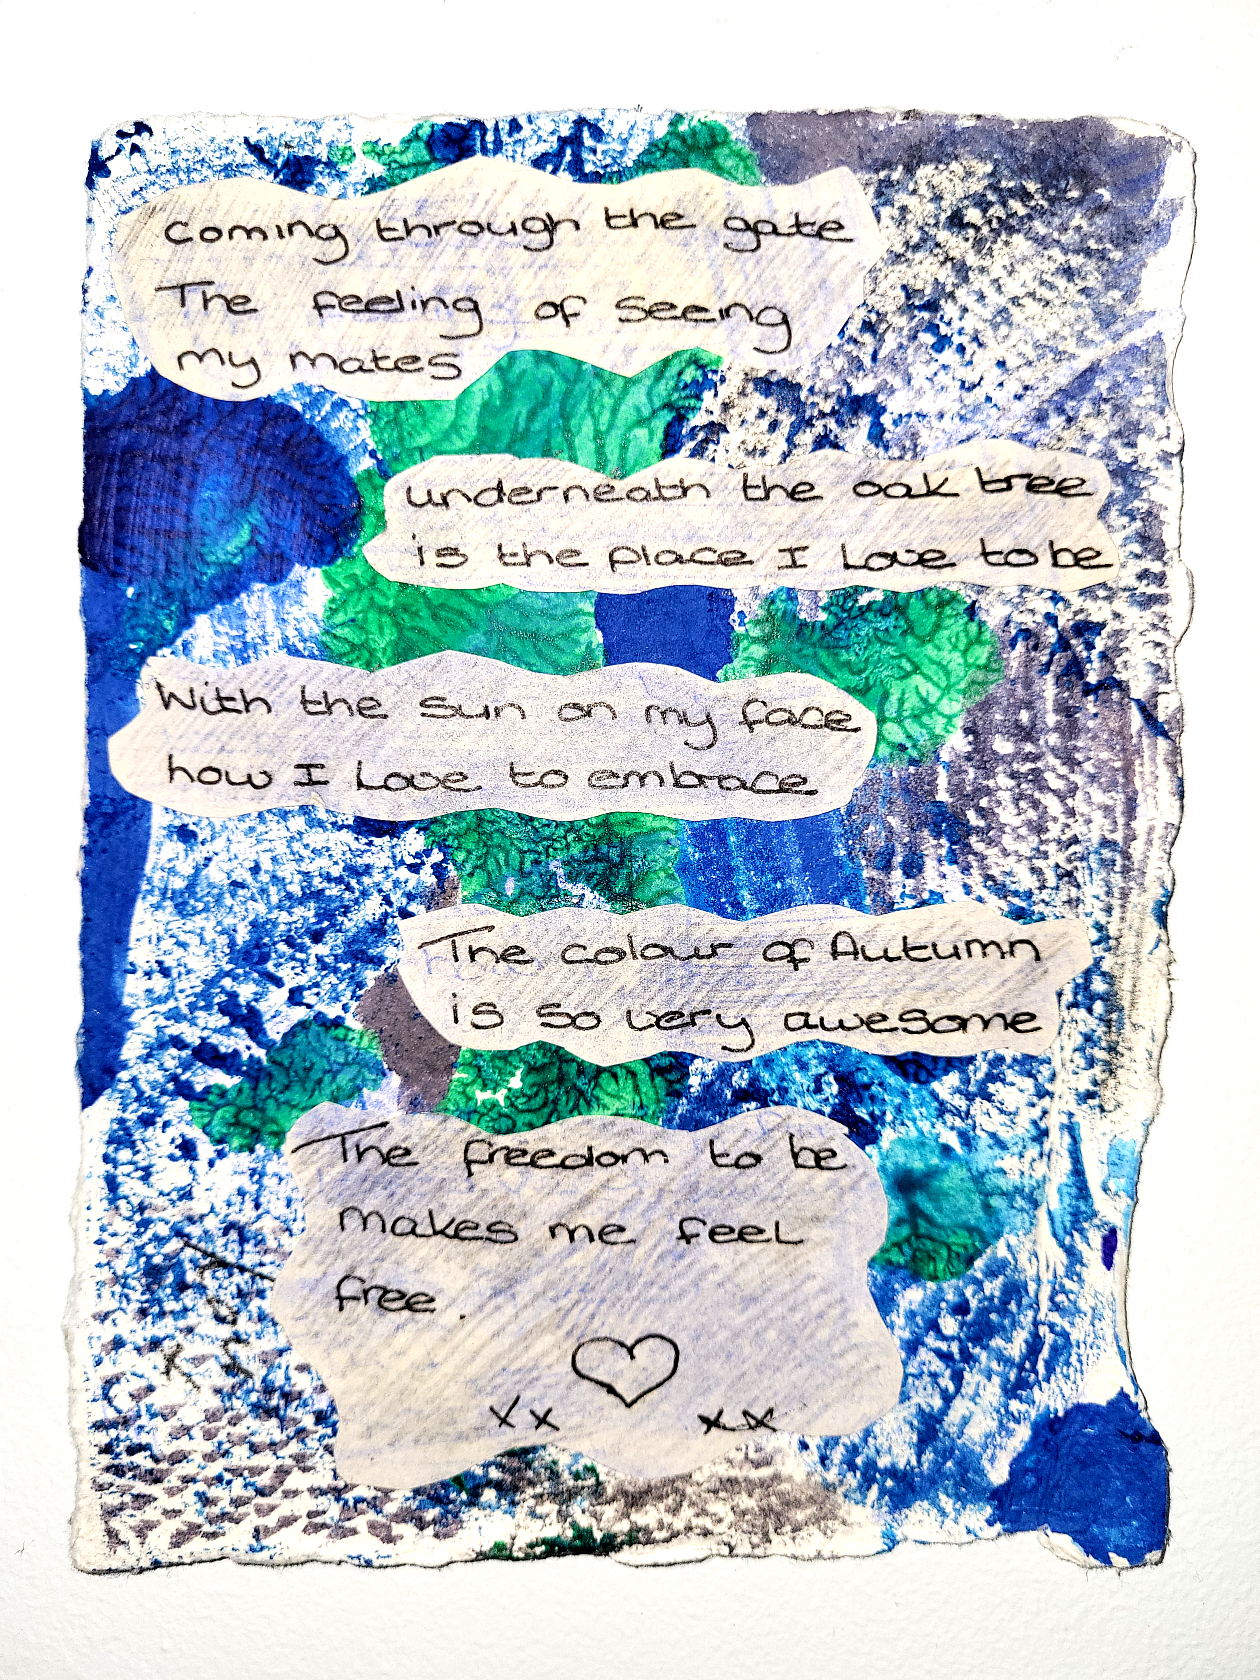 Coming through the gate
The feeling of seeing
my mates
underneath the oak tree
is the place I Love to be
With the sun on my face
how I Love to embrace
The colour of Autumn
is so very awesome
The freedom to be
makes me feel
free.
xx xx